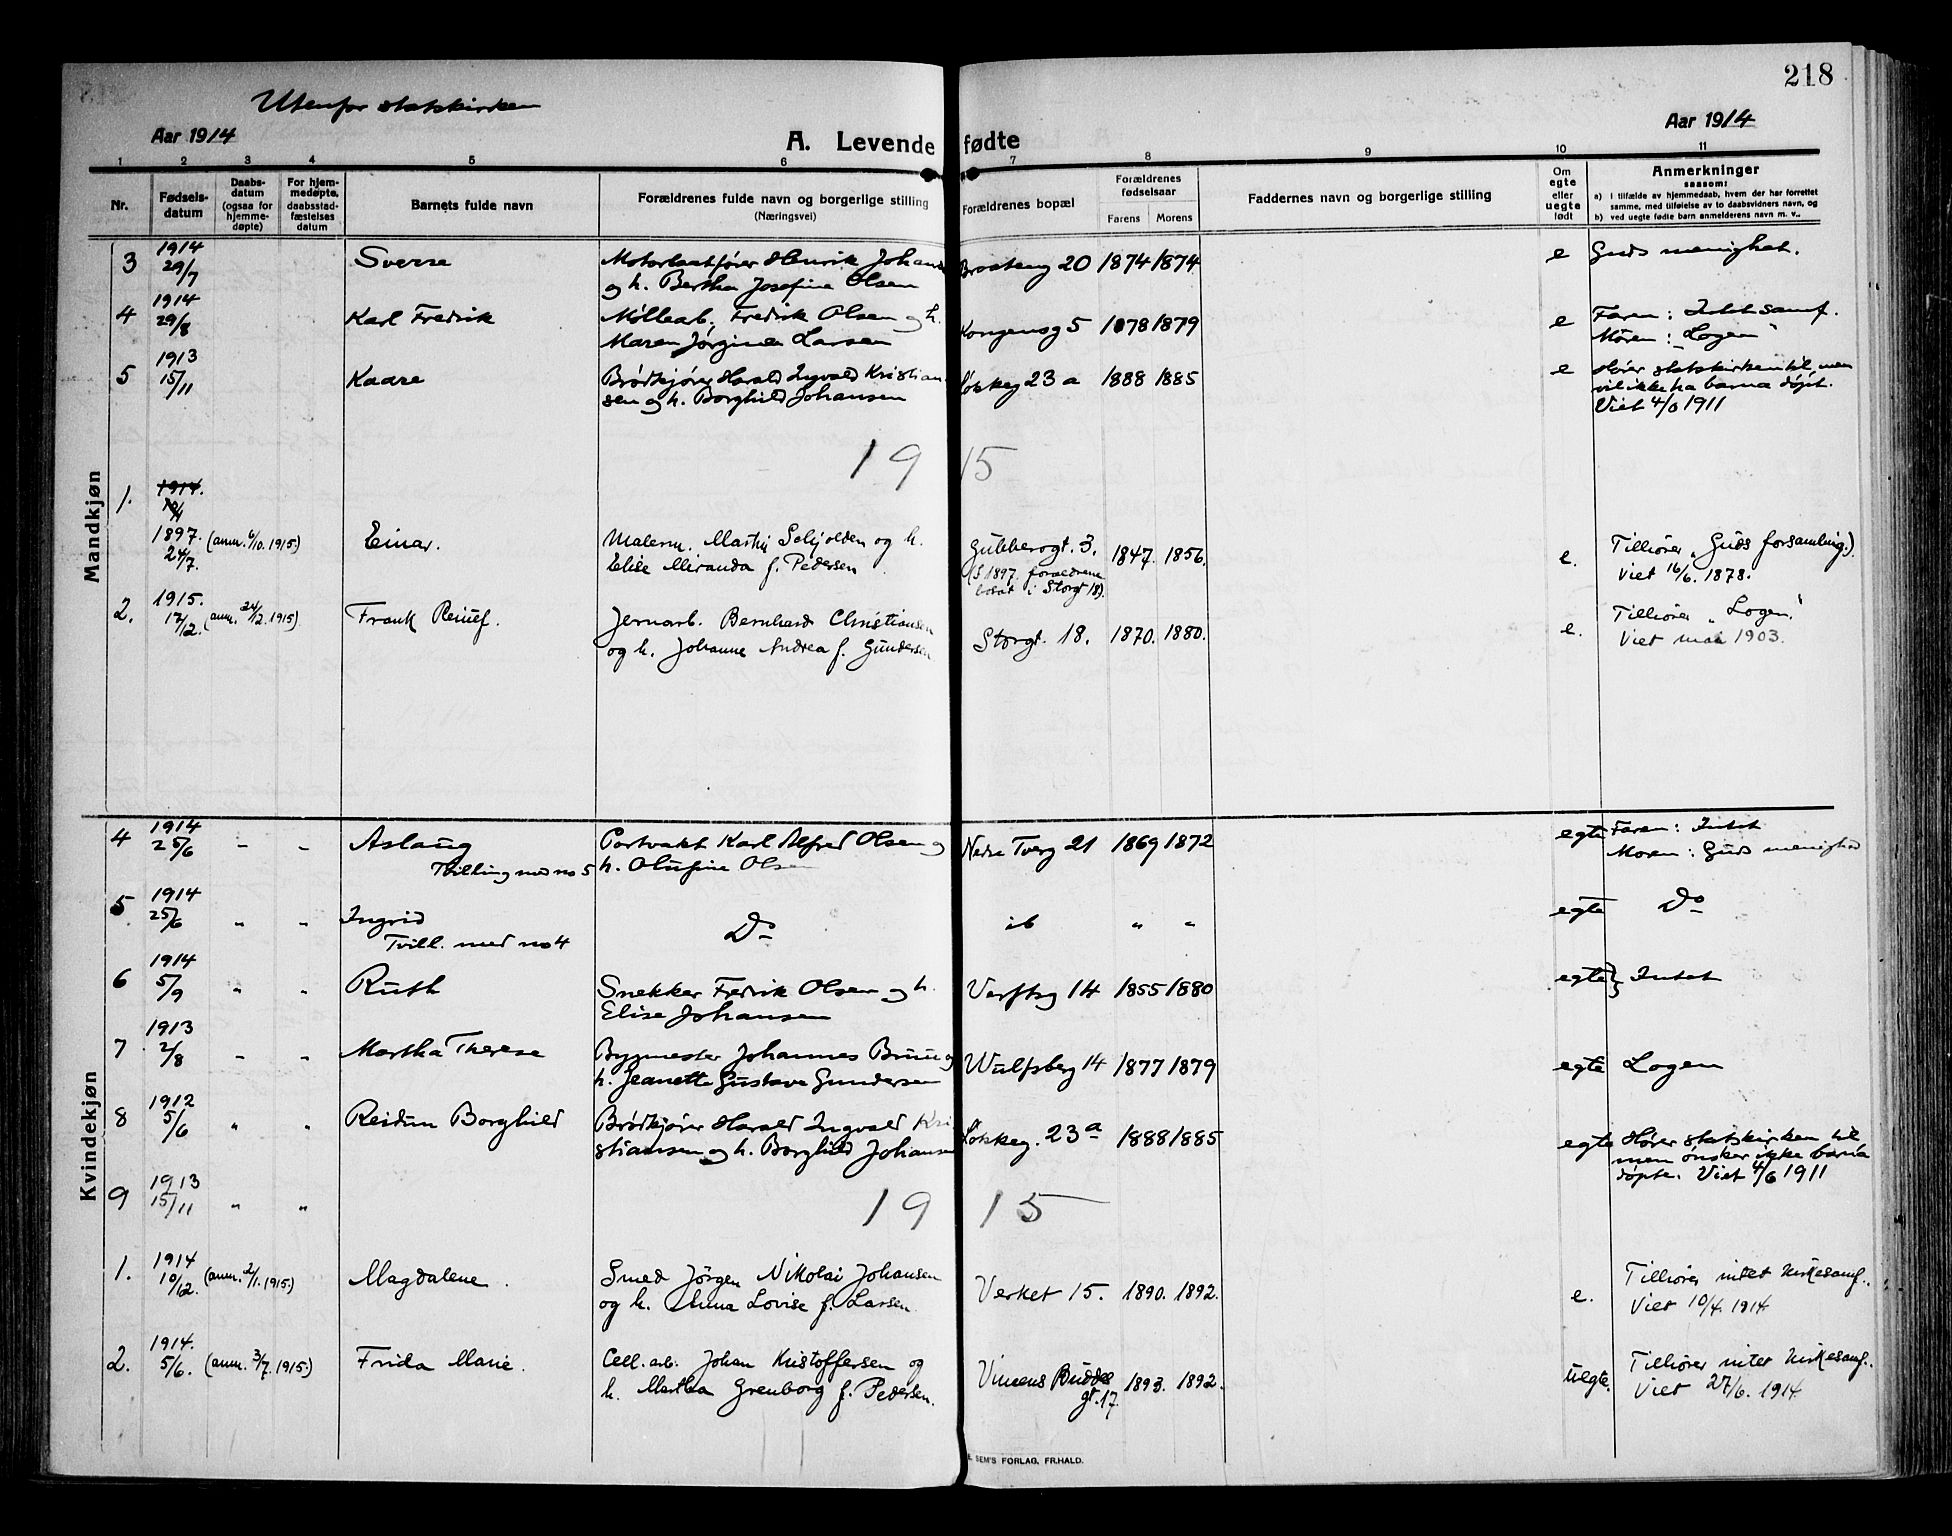 218
Utenfor statskirken
Aar 1914
A. Levende fødte
Aar 1914
1 2 3 4 5 6 7 8 9 10 11
Nr.
Fødsels-
datum
Daabs-
datum
(ogsaa for
hjemme-
døpte)
For hjem-
medøpte,
daabsstad-
fæstelses
datum
Barnets fulde navn
Forældrenes fulde navn og borgerlige stilling
(Næringsvei)
Forældrenes bopæl
Forældrenes
fødselsaar
Farens Morens
Faddernes navn og borgerlige stilling
Om
egte
eller
uegte
født
Anmerkninger
saasom:
a) i tilfælde av hjemmedaab, hvem der har forrettet
samme, med tilføielse av to daabsvidners navn, og
b) ved uegte fødte barn anmelderens navn m. v..
Mandkjøn
3 1914 29/7 Sverre Motorbaatfører Henrik Johan
og h. Bertha Josefine Olsen
Braateng 20 1874 1874 e Guds menighet.
4 1914 29/8 Karl Fredrik Mølleab. Fredrik Olsen og h.
Maren Jørgine Larsen
Kongensg 5 1878 1879 e Faren: Intet samf.
Moren: "Logen"
5 1913 15/11 Kaare Brødkjører Harald Ingvald Kristian-
sen og h. Borghild Johansen
Løkkeg 23 a 1888 1885 e Hører statskirken til, men
vil ikke ha barna døpt.
Viet 4/6 1911
1915
1. 1914.
1897. 24/7. (anm. 6/10. 1915) Einar. Malerm. Martin Schjolden og h.
Elise Miranda f. Pedersen
Gubberogt. 3.
(I 1897. forældrene
bosat i Storgt 18).
1847. 1856. e. Tilhører "Guds forsamling".)
Viet 16/6. 1878.
2. 1915. 17/12. (anm. 24/12. 1915) Frank Reinef. Jernarb. Bernhard Christiansen
og h. Johanne Andrea f. Gundersen
Storgt. 18. 1870. 1880. e. Tilhører "Logen".
Viet mai 1903.
Kvindekjøn
4 1914 25/6 - - Aslaug
Tvilling med no 5
Portvakt Karl Alfred Olsen og
h. Olufine Olsen
Nedre Tverg 21 1869 1872 egte Faren: Intet
Moren: Guds menighed
5 1914 25/6 " " Ingrid
Tvill. med no 4
Do ib " " egte Do
6 1914 5/9 " " Ruth Snekker Fredrik Olsen og h.
Elise Johansen
Verftsg 14 1855 1880 egte } Intet
7 1913 2/8 - " Martha Therese Bygmester Johannes Bruu og
h. Jeanette Gustava Gundersen
Wulfsberg 14 1877 1879 egte Logen
8 1912 5/6 " " Reidun Borghild Brødkjører Harald Ingvald Kri
stiansen og h. Borghild Johansen
Løkkeg. 23 a 1888 1885 egte Hører statskirken til
men ønsker ikke barna
døpte. Viet 4/6 1911
9 1913 15/11 " "
1915
1. 1914 10/12. (anm. 2/1. 1915.) Magdalene. Smed Jørgen Nikolai Johansen
og h. Anna Lovise f. Larsen.
Verket 15. 1890. 1892. e. Tilhører intet kirkesamf..
Viet 10/4. 1914
2. 1914. 5/6. (anm. 3/7. 1915.) Frida Marie. Cell. arb. Johan Kristoffersen og
h. Martha Grenborg f. Pedersen.
Vincens Buddes
gt. 17.
1893. 1892. uegte. Tilhører intet kirkesamf..
Viet 27/6. 1914.
SEM'S FORLAG, FR.HALD.